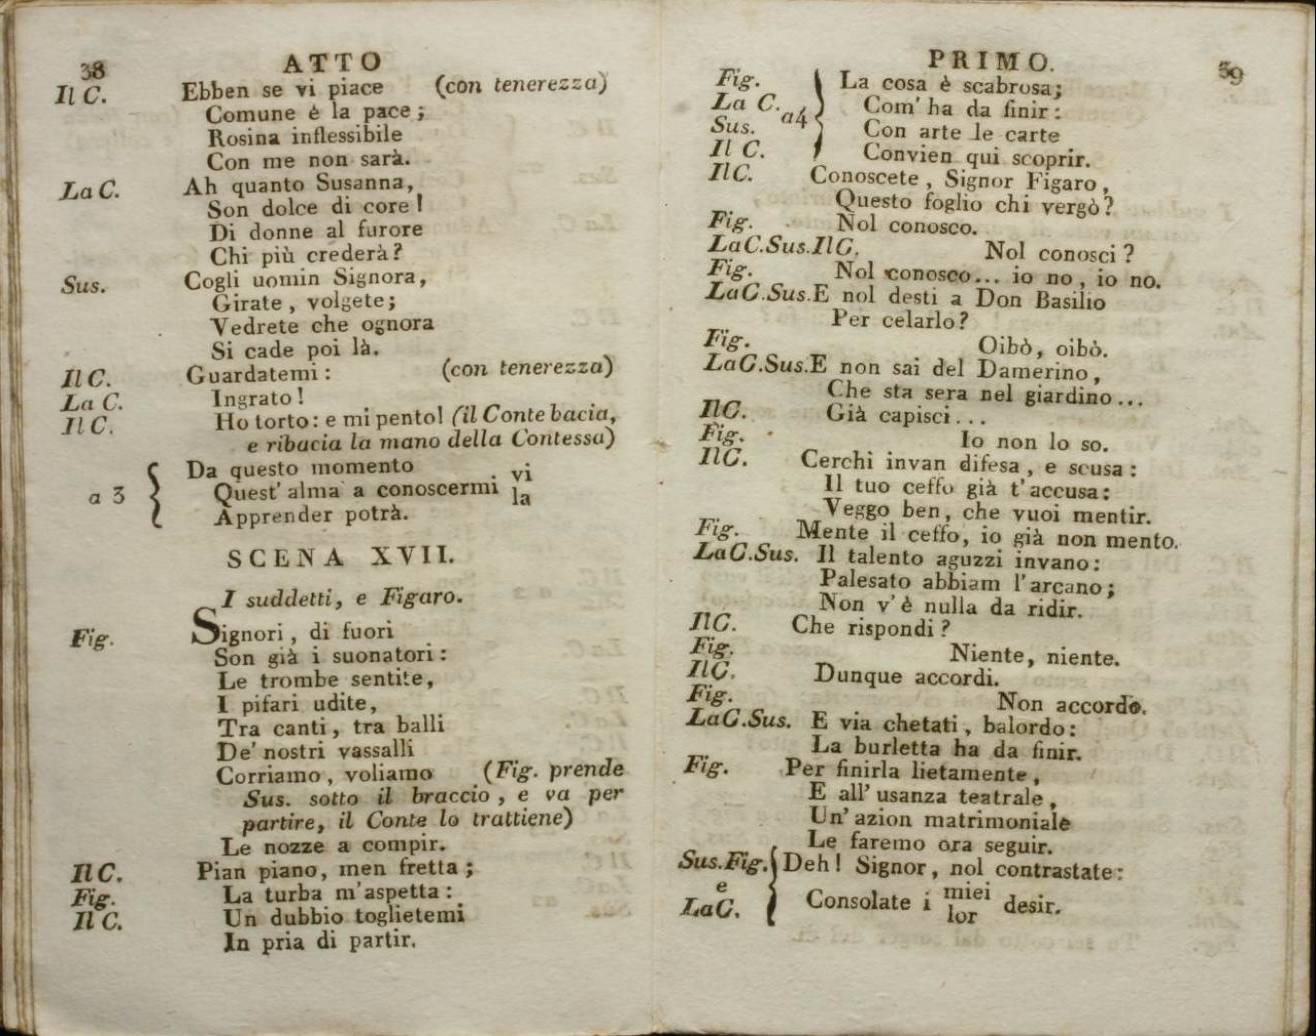 38 ATTO
Il C. Ebben se vi piace (con tenerezza)
Comune è la pace;
Rosina inflessibile
Con me non sarà.
La C. Ah quanto Susanna,
Son dolce di core!
Di donne al furore
Chi più crederà?
Sus. Cogli uomin Signora,
Girate, volgete;
Vedrete che ognora
Si cade poi là.
Il C. Guardatemi: (con tenerezza)
La C. Ingrato!
Il C. Ho torto: e mi pento! (il Conte bacia,
e ribacia la mano della Contessa)
Da questo momento
a 3 Quest' alma a conoscermi vi la
Apprender potrà.
SCENA XVII.
I suddetti, e Figaro.
Fig. Signori, di fuori
Son già i suonatori:
Le trombe sentite,
I pifari udite,
Tra canti, tra balli
De' nostri vassalli
Corriamo, voliamo (Fig. prende
Sus. sotto il braccio, e va per
partire, il Conte lo trattiene)
Le nozze a compir.
Il C. Pian piano, men fretta;
Fig. La turba m'aspetta:
Il C. Un dubbio toglietemi
In pria di partir.
PRIMO. 39
Fig. La cosa è scabrosa;
La C. a4 Com' ha da finir:
Sus. Con arte le carte
Il C. Convien qui scoprir.
Il C. Conoscete, Signor Figaro,
Questo foglio chi vergò?
Fig. Nol conosco.
La C. Sus. Il C. Nol conosci?
Fig. Nol conosco... io no, io no.
La C. Sus. E nol desti a Don Basilio
Per celarlo?
Fig. Oibò, oibò.
La C. Sus. E non sai del Damerino,
Che sta sera nel giardino...
Il C. Già capisci...
Fig. Io non lo so.
Il C. Cerchi invan difesa, e scusa:
Il tuo ceffo già t'accusa:
Veggo ben, che vuoi mentir.
Fig. Mente il ceffo, io già non mento.
La C. Sus. Il talento aguzzi invano:
Palesato abbiam l'arcano;
Non v'è nulla da ridir.
Il C. Che rispondi?
Fig. Niente, niente.
Il C. Dunque accordi.
Fig. Non accordo.
La C. Sus. E via chetati, balordo:
La burletta ha da finir.
Fig. Per finirla lietamente,
E all' usanza teatrale,
Un' azion matrimoniale
Le faremo ora seguir.
Sus. Fig. Deh! Signor, nol contrastate:
e La C. Consolate i miei lor desir.